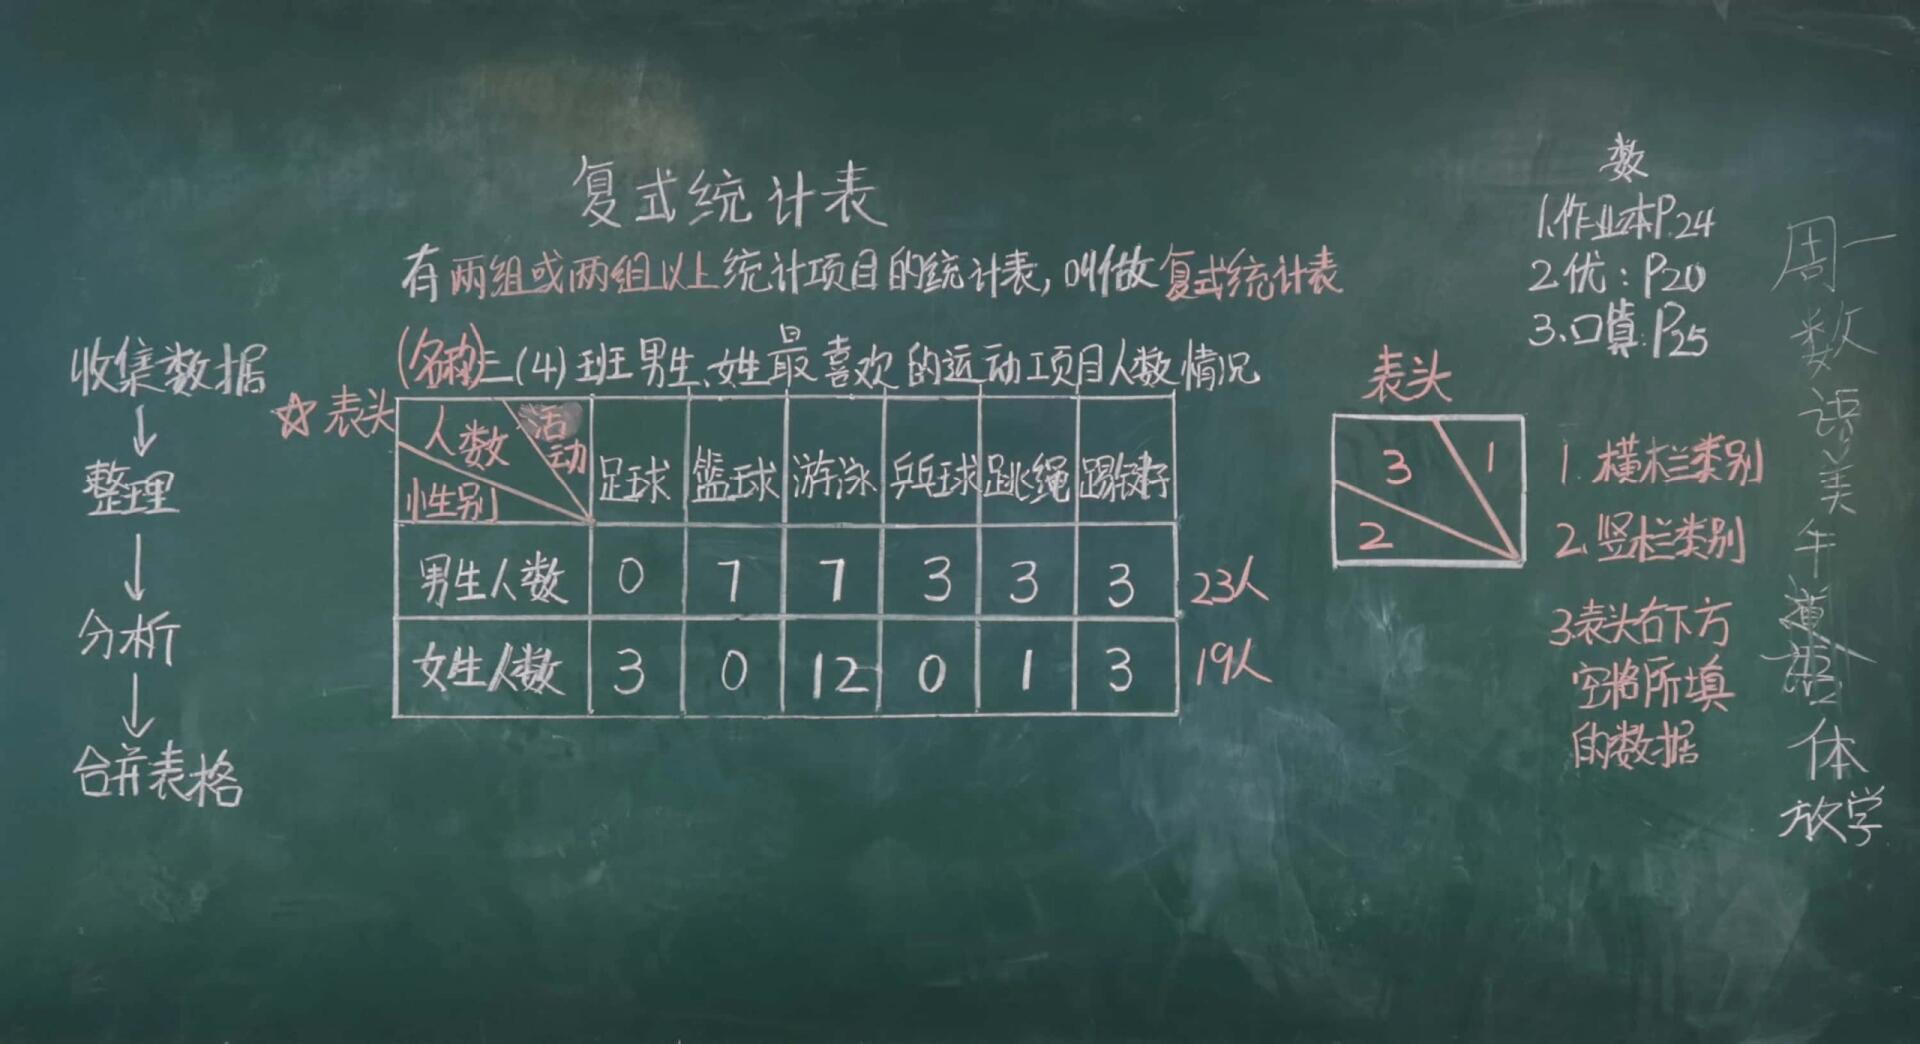 复式统计表
有两组或两组以上统计项目的统计表,叫做复式统计表
(名称)三(4)班男生、女生最喜欢的运动项目人数情况
收集数据
↓
整理
↓
分析
↓
合并表格
☆表头
人数 活动 性别 足球 篮球 游泳 乒乓球 跳绳 踢毽子
男生人数 0 7 7 3 3 3 23人
女生人数 3 0 12 0 1 3 19人
表头
3 1
2
1.横栏类别
2.竖栏类别
3表头右下方
空格所填
的数据
数
1.作业本P.24
2优:P20
3.口算:P25
周一
数
语
美
午
道
体
放学